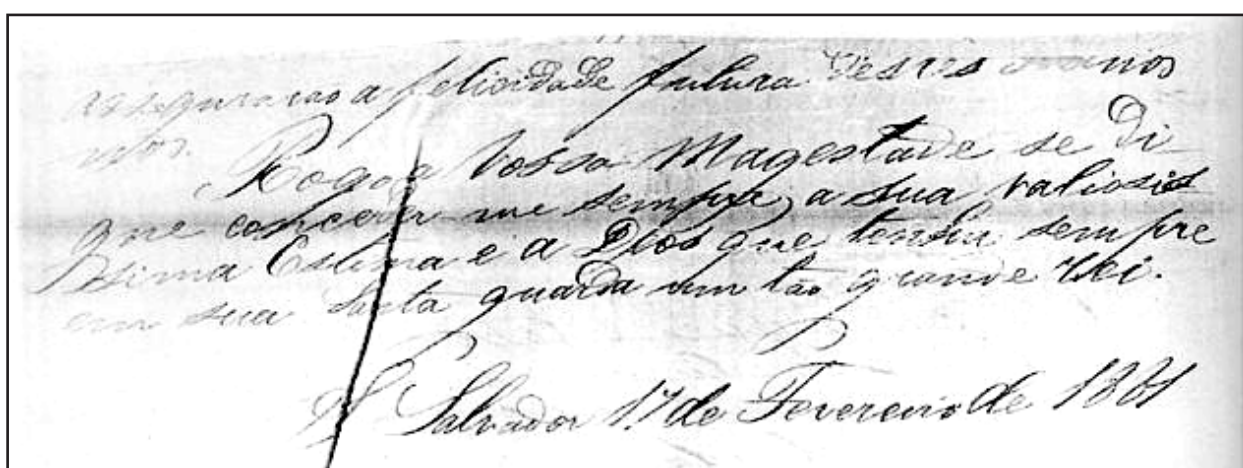 assegurarão a felicidade futura destes
Rogo a Vossa Magestade se Di
gne conceder me sempre, a sua valiosis
sima Estima e a Dios que tenha sempre
em sua Santa guarda um tão grande Rei.
S Salvador 17 de Fevereiro de 1881